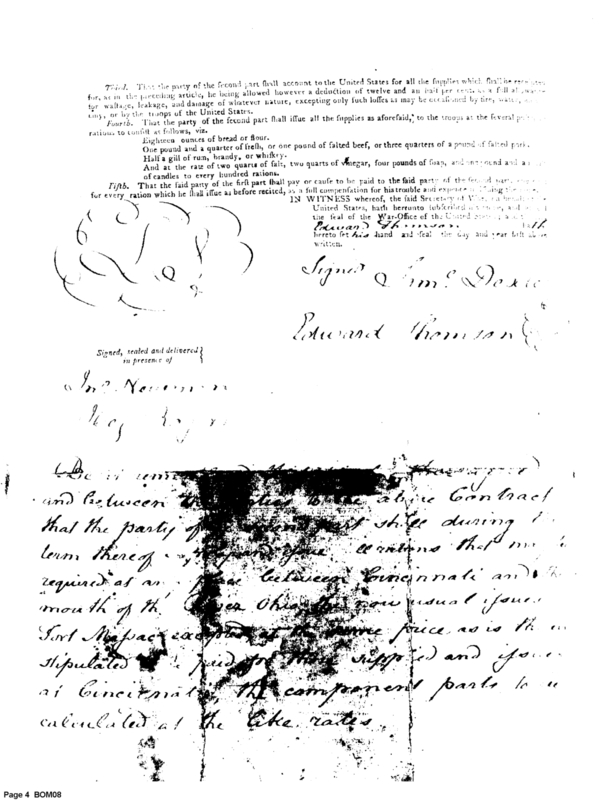 Third. That the party of the second part shall account to the United States for all the supplies which shall be
for, as in the preceding article, he being allowed however a deduction of twelve and an half per cent. as a full
for wastage, leakage, and damage of whatever nature, excepting only such losses as may be occasioned by fire, water,
or by the troops of the United States.
Fourth. That the party of the second part shall issue all the supplies as aforesaid, to the troops at the several
rations to consist as follows, viz.
Eighteen ounces of bread or flour.
One pound and a quarter of fresh, or one pound of salted beef, or three quarters of a pound of salted pork.
Half a gill of rum, brandy, or whiskey.
And at the rate of two quarts of salt, two quarts of vinegar, four pounds of soap, and one pound and a
of candles to every hundred rations.
Fifth. That the said party of the first part shall pay or cause to be paid to the said party of the second part,
for every ration which he shall issue as before recited, as a full compensation for his trouble and expence
IN WITNESS whereof, the said Secretary of War,
United States, hath hereunto subscribed
the seal of the War-Office of the United States;
Edward Thomson hath
hereto set his hand and seal the day and year last
written.
Signed
Edward Thomson
Signed, sealed and delivered
in presence of
Jno. Newman
and between the parties to the above Contract
that the party of the second part shall during
term thereof rations that
required at any place between Cincinnati and the
mouth of the River Ohio the now usual issues
Fort Massac excepted at the same price as is the
stipulated paid for those supplied and
at Cincinnati, the component parts to
calculated at the like rates.
Page 4 BOM08